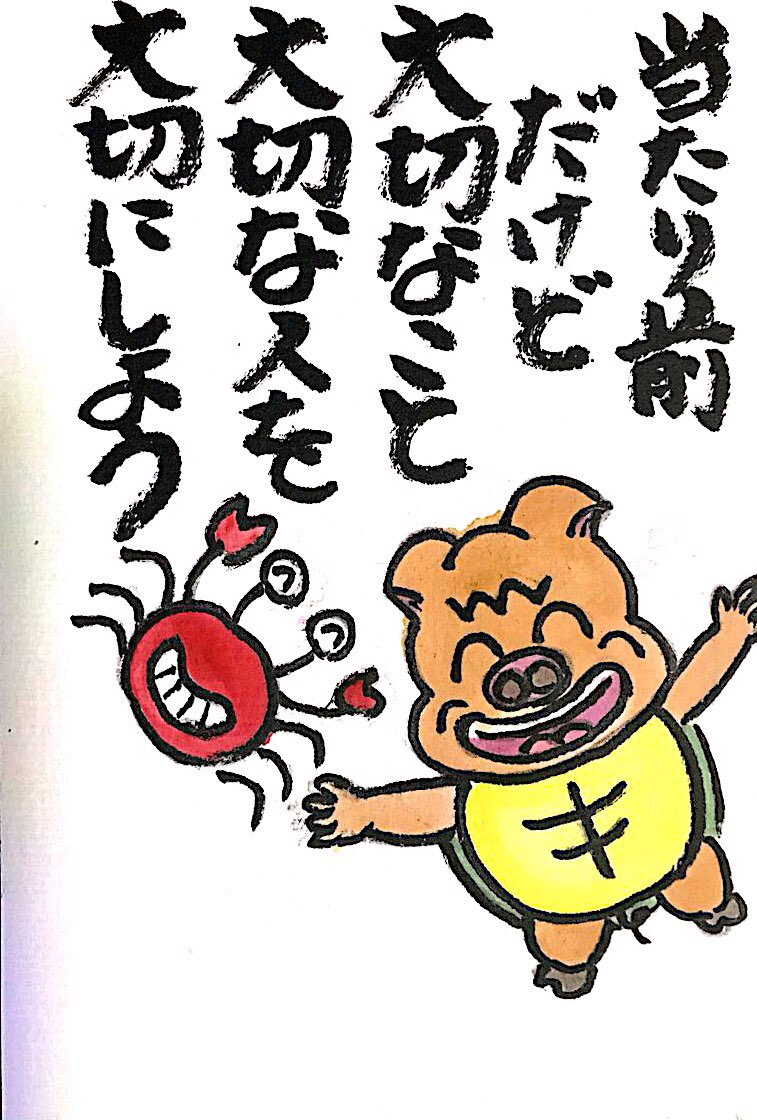 当たり前
だけど
大切なこと
大切な人を
大切にしよう
キ